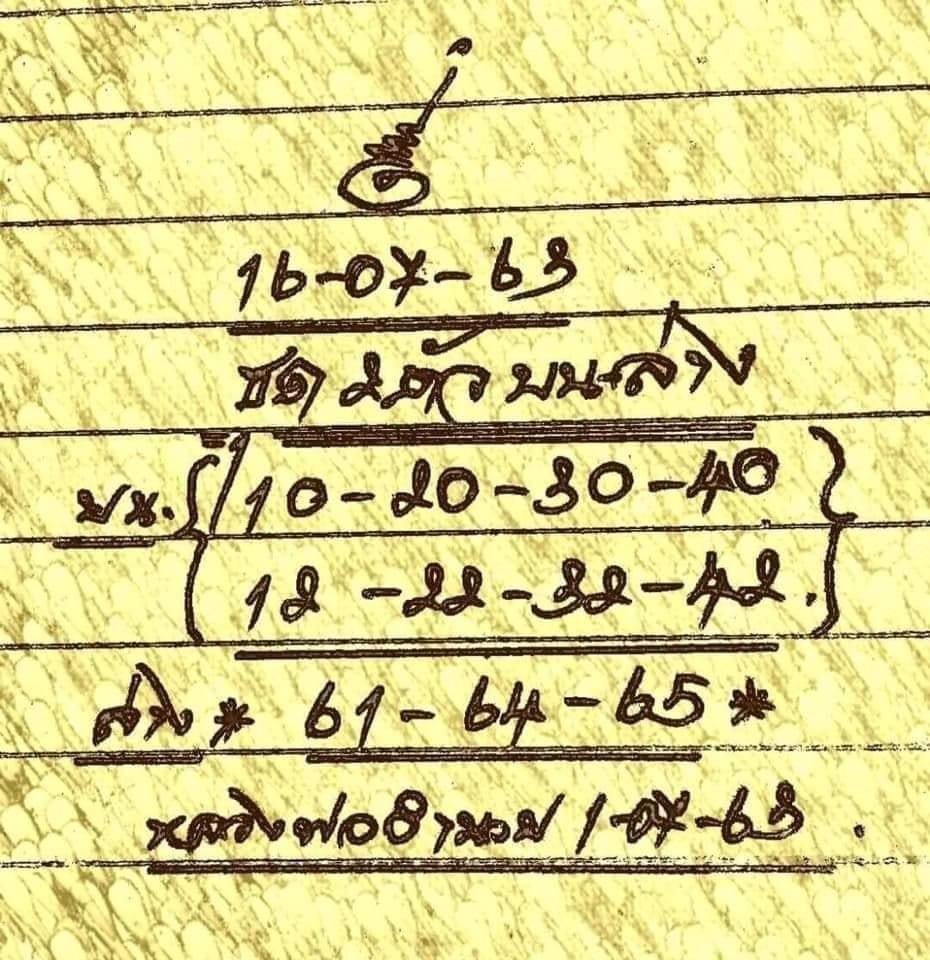 16-07-63
ชุด 2ตัว บน+ล่าง
บน. 10-20-30-40
12-22-32-42.
ล่าง * 61-64-65 *
หลวงพ่อ 1-07-63.